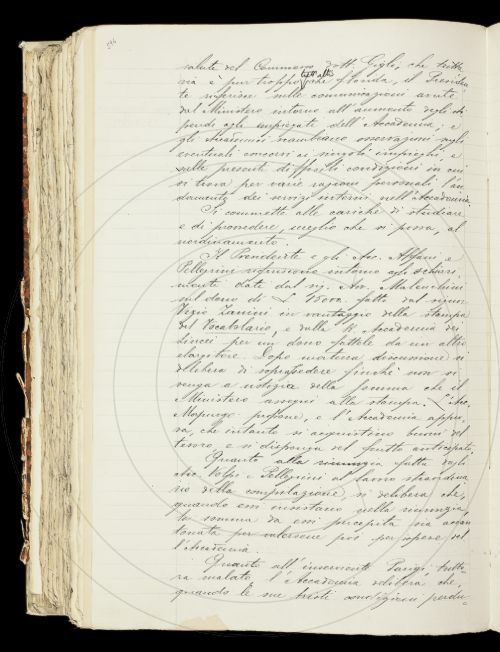 salute del Commesso dott. Giglio, che tutta-
via è pur troppo tutt'altro che florida, il Presiden-
te riferisce sulle comunicazioni avute
dal Ministero intorno all'aumento degli sti-
pendi agli impiegati dell'Accademia; e
gli Accademici scambiano osservazioni sugli
eventuali concorsi ai singoli impieghi, e
sulle presenti difficili condizioni in cui
si trova per varie ragioni personali l'an-
damento dei servizi interni nell'Accademia.
Si commette alle cariche di studiare
e di provvedere, meglio che si possa, al
riordinamento.
Il Presidente e gli Acc. Alfani e
Pellegrini riferiscono intorno agli schiari-
menti dati dal sig. Avv.
sul dono di L. 15000 fatto dal signor
Vezio Zanini in vantaggio della stampa
del Vocabolario, e dalla R. Accademia dei
Lincei per un dono fattole da un altro
elargitore. Dopo matura discussione si
delibera di soprassedere finchè non si
venga a notizia della somma che il
Ministero assegni alla stampa. L'Acc.
Mapurgo propone, e l'Accademia appro-
va, che intanto si acquistino buoni del
tesoro e si disponga del frutto anticipato.
Quanto alla rinunzia fatta dagli
Acc. Volpi e Pellegrini al lavoro straordina-
rio della compilazione, si delibera che,
quando essi insistano nella rinunzia,
la somma da essi percepita sia accan-
tonata per valersene poi per opere del-
l'Accademia.
Quanto all'inserviente Pangi, tutto-
ra malato, l'Accademia delibera che,
quando le sue tristi condizioni perdu-